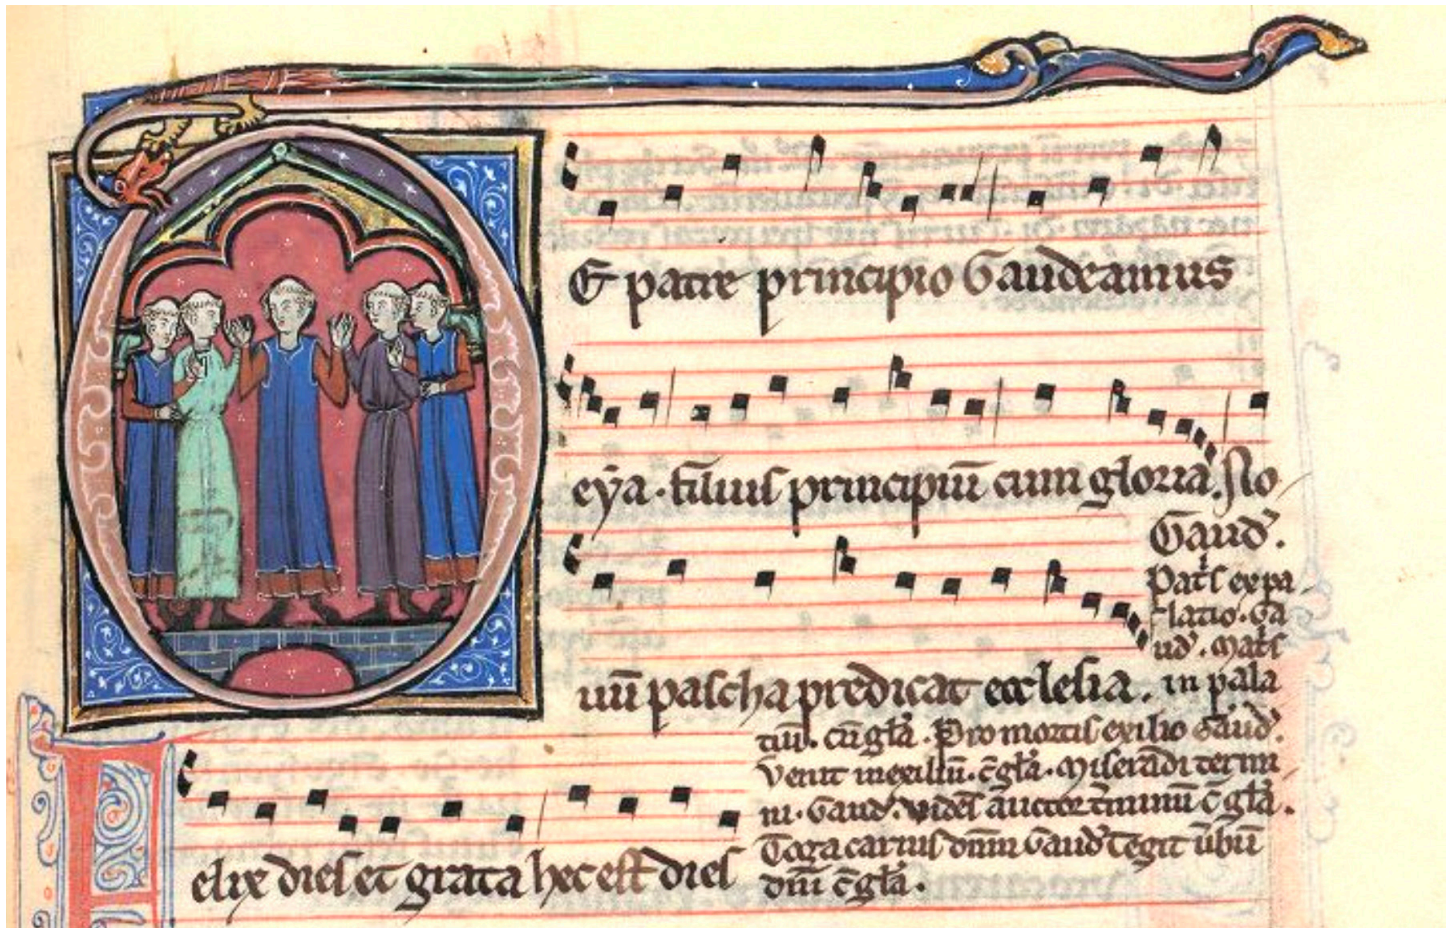 E patre principio Gaudeamus
eya. filius principiū cum gloria. No
Gaud'.
uū pascha predicat ecclesia.
Pat's ex pa
latio. Ga
ud'. mat's
in pala
tiū. cū gl'a. Pro mortis exilio Gaud'.
Venit in exiliū. c̄ gl'a. Miserādi termi
ni. Gaud'. c̄ gl'a.
Toga carnis dn̄m Gaud' Tegit
c̄ gl'a.
elix dies et grata hec est dies